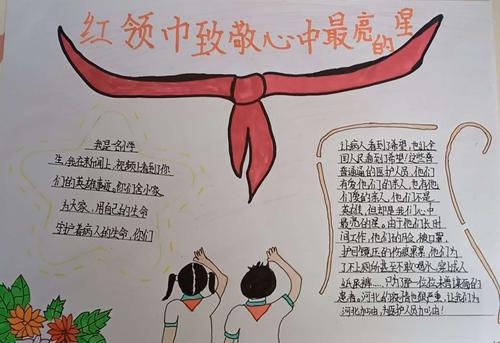 红领巾致敬心中最亮的星
我是一名小学
生,我在新闻上,视频上看到了你
们的英雄事迹。你们舍小家
为大家,用自己的生命
守护着病人的生命,你们
让病人看到了希望,也让全
国人民看到了希望!这些普
普通通的医护人员,他们
有爱他们的亲人,也有他
们爱的亲人,他们不是
英雄,但却是我们心中
最亮的星。由于他们长时
间工作,他们的脸被口罩、
护目镜压的伤痕累累,他们为
了不上厕所甚至不敢喝水,穿上成人
纸尿裤……只为了那一位位未曾谋面的
患者。河北的疫情也很严重,让我们为
河北加油,为医护人员加油!